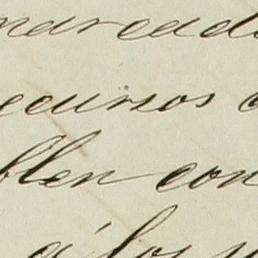 marcado
recursos
blen con
á los